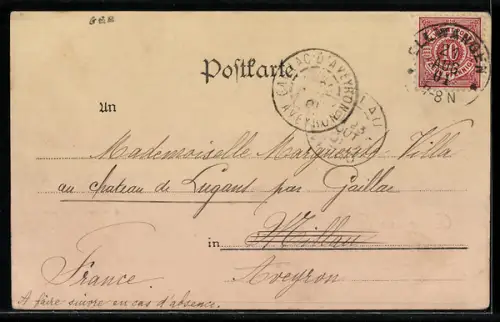 ELLWANGEN
AUG
01
7-8 N
10
Postkarte.
GAILLAC D'AVEYRON
AVEYRON
An
Mademoiselle Marguerite Villa
au chateau de Lugans par Gaillac
in Millau
Aveyron
France.
A faire suivre en cas d'absence.